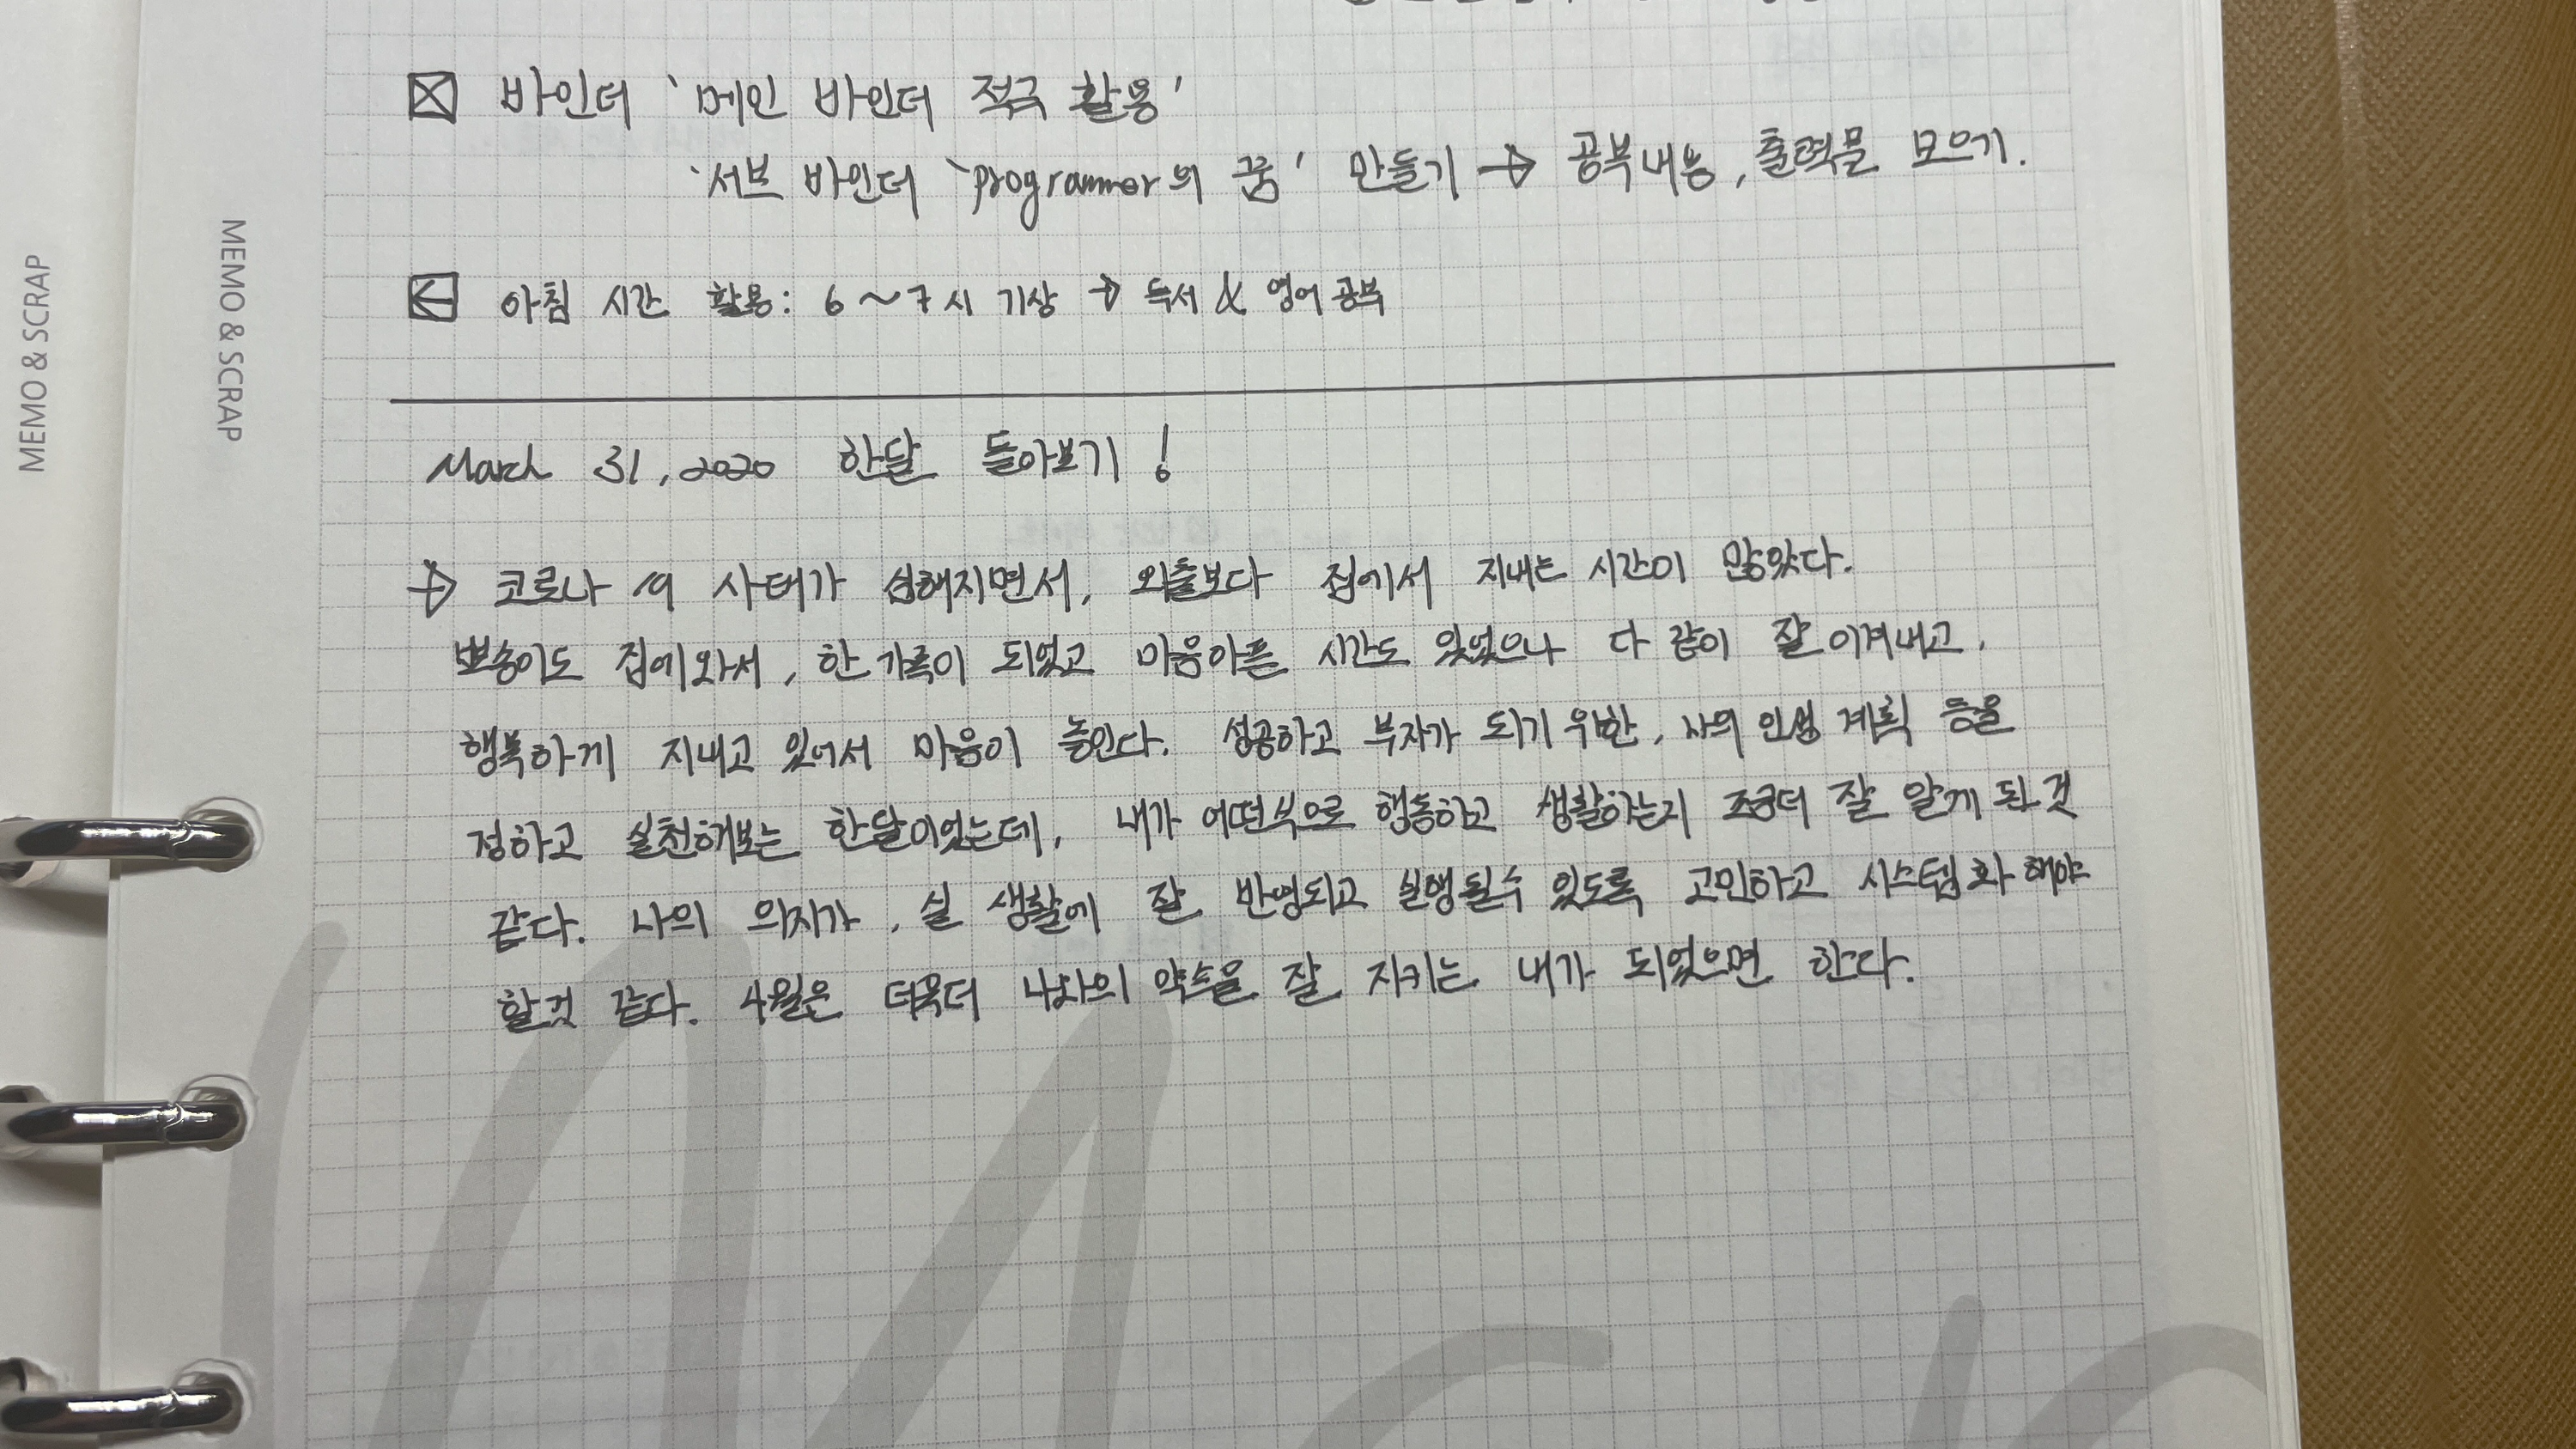 ☒ 바인더 '메인 바인더 적극 활용'
'서브 바인더 'programmer의 꿈' 만들기 → 공부내용, 출력물 모으기.
아침 시간 활용: 6~7시 기상 → 독서 & 영어공부
March 31, 2020 한달 돌아보기!
→ 코로나 19 사태가 심해지면서, 외출보다 집에서 지내는 시간이 많았다.
뽀송이도 집에와서, 한 가족이 되었고 마음아픈 시간도 있었으나 다 같이 잘 이겨내고,
행복하게 지내고 있어서 마음이 놓인다. 성공하고 부자가 되기 위한, 나의 인생 계획 등을
정하고 실천해보는 한달이었는데, 내가 어떤식으로 행동하고 생활하는지 조금더 잘 알게 된 것
같다. 나의 의지가, 실 생활에 잘 반영되고 실행될수 있도록 고민하고 시스템화 해야
할것 같다. 4월은 더욱더 나와의 약속을 잘 지키는 내가 되었으면 한다.
MEMO & SCRAP
MEMO & SCRAP